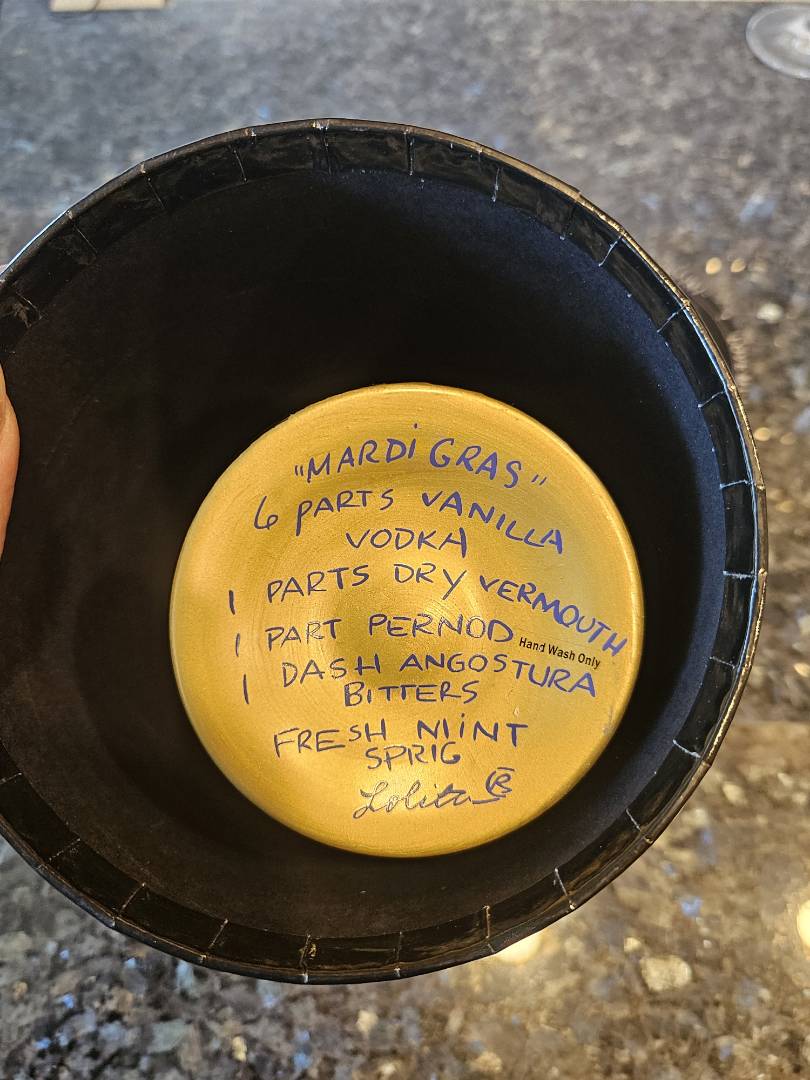 "MARDi GRAS"
6 PARTS VANILLA
VODKA
1 PARTS DRY VERMOUTH
1 PART PERNOD
Hand Wash Only
1 DASH ANGOSTURA
BITTERS
FRESH MiNT
SPRIG
Lolita ®